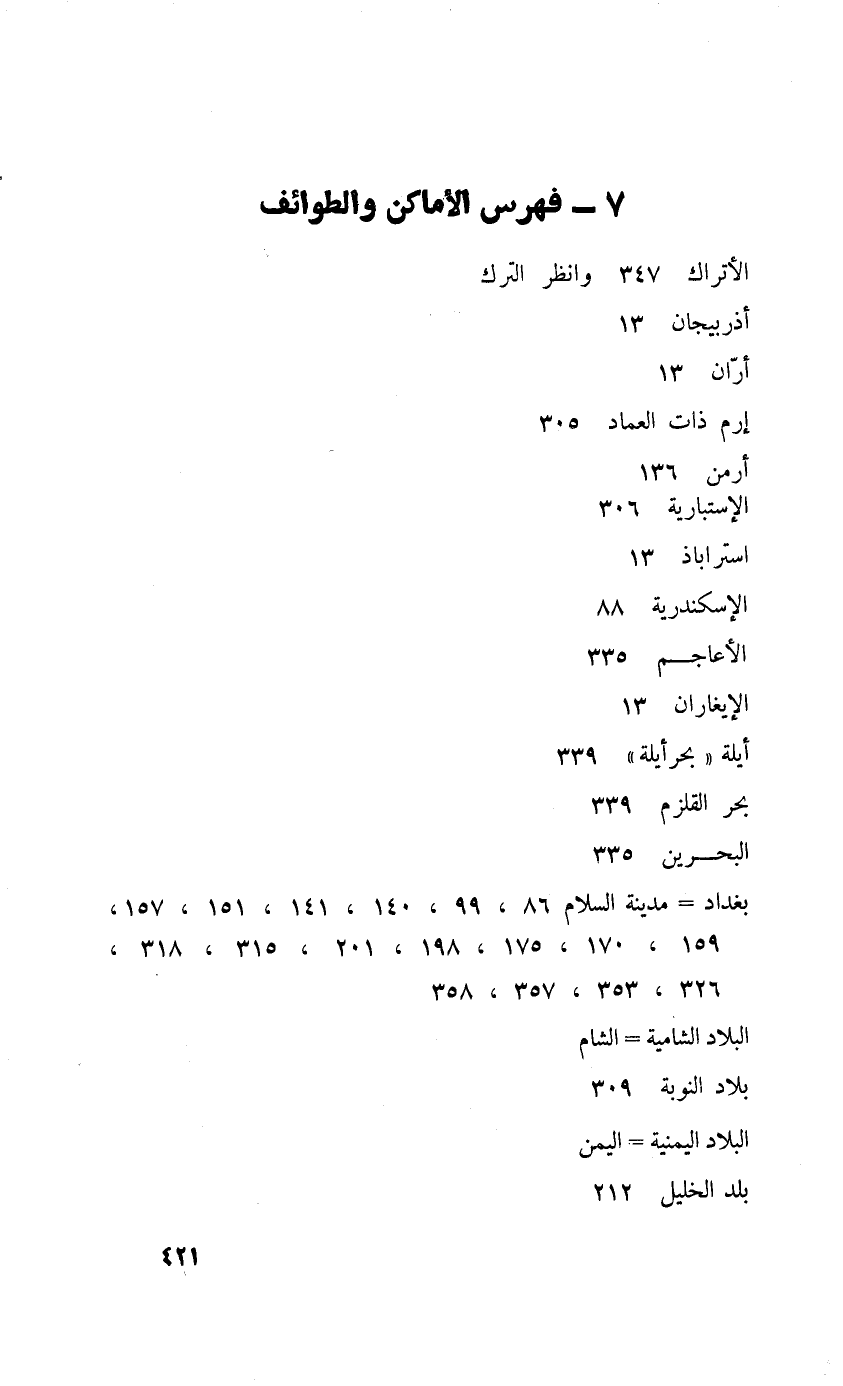 ٧ ــ فهرس الأماكن والطوائف
الأتراك ٣٤٧ وانظر الترك
أذربيجان ١٣
أرّان ١٣
إرم ذات العماد ٣٠٥
أرمن ١٣٦
الإستبارية ٣٠٦
استراباذ ١٣
الإسكندرية ٨٨
الأعاجــم ٣٣٥
الإيغاران ١٣
أيلة « بحر أيلة » ٣٣٩
بحر القلزم ٣٣٩
البحــرين ٣٣٥
بغداد = مدينة السلام ٨٦ ، ٩٩ ، ١٤٠ ، ١٤١ ، ١٥١ ، ١٥٧ ،
١٥٩ ، ١٧٠ ، ١٧٥ ، ١٩٨ ، ٢٠١ ، ٣١٥ ، ٣١٨ ،
٣٢٦ ، ٣٥٣ ، ٣٥٧ ، ٣٥٨
البلاد الشامية = الشام
بلاد النوبة ٣٠٩
البلاد اليمنية = اليمن
بلد الخليل ٢١٢
٤٢١